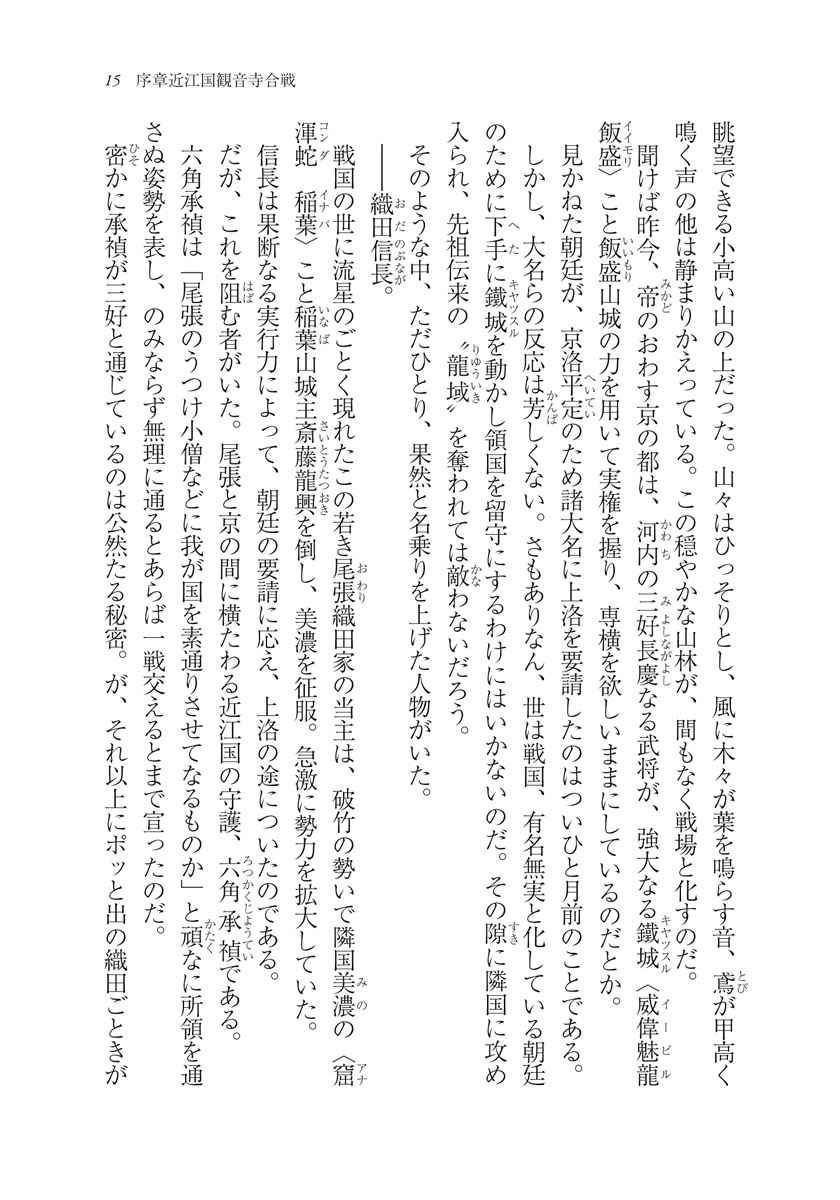 15 序章近江国観音寺合戦
眺望できる小高い山の上だった。山々はひっそりとし、風に木々が葉を鳴らす音、鳶が甲高く
鳴く声の他は静まりかえっている。この穏やかな山林が、間もなく戦場と化すのだ。
聞けば昨今、帝のおわす京の都は、河内の三好長慶なる武将が、強大なる鐵城〈威偉魅龍
飯盛〉こと飯盛山城の力を用いて実権を握り、専横を欲しいままにしているのだとか。
見かねた朝廷が、京洛平定のため諸大名に上洛を要請したのはついひと月前のことである。
しかし、大名らの反応は芳しくない。さもありなん、世は戦国、有名無実と化している朝廷
のために下手に鐵城を動かし領国を留守にするわけにはいかないのだ。その隙に隣国に攻め
入られ、先祖伝来の〝龍域〟を奪われては敵わないだろう。
そのような中、ただひとり、果然と名乗りを上げた人物がいた。
――織田信長。
戦国の世に流星のごとく現れたこの若き尾張織田家の当主は、破竹の勢いで隣国美濃の〈窟
渾蛇 稲葉〉こと稲葉山城主斎藤龍興を倒し、美濃を征服。急激に勢力を拡大していた。
信長は果断なる実行力によって、朝廷の要請に応え、上洛の途についたのである。
だが、これを阻む者がいた。尾張と京の間に横たわる近江国の守護、六角承禎である。
六角承禎は「尾張のうつけ小僧などに我が国を素通りさせてなるものか」と頑なに所領を通
さぬ姿勢を表し、のみならず無理に通るとあらば一戦交えるとまで宣ったのだ。
密かに承禎が三好と通じているのは公然たる秘密。が、それ以上にポッと出の織田ごときが